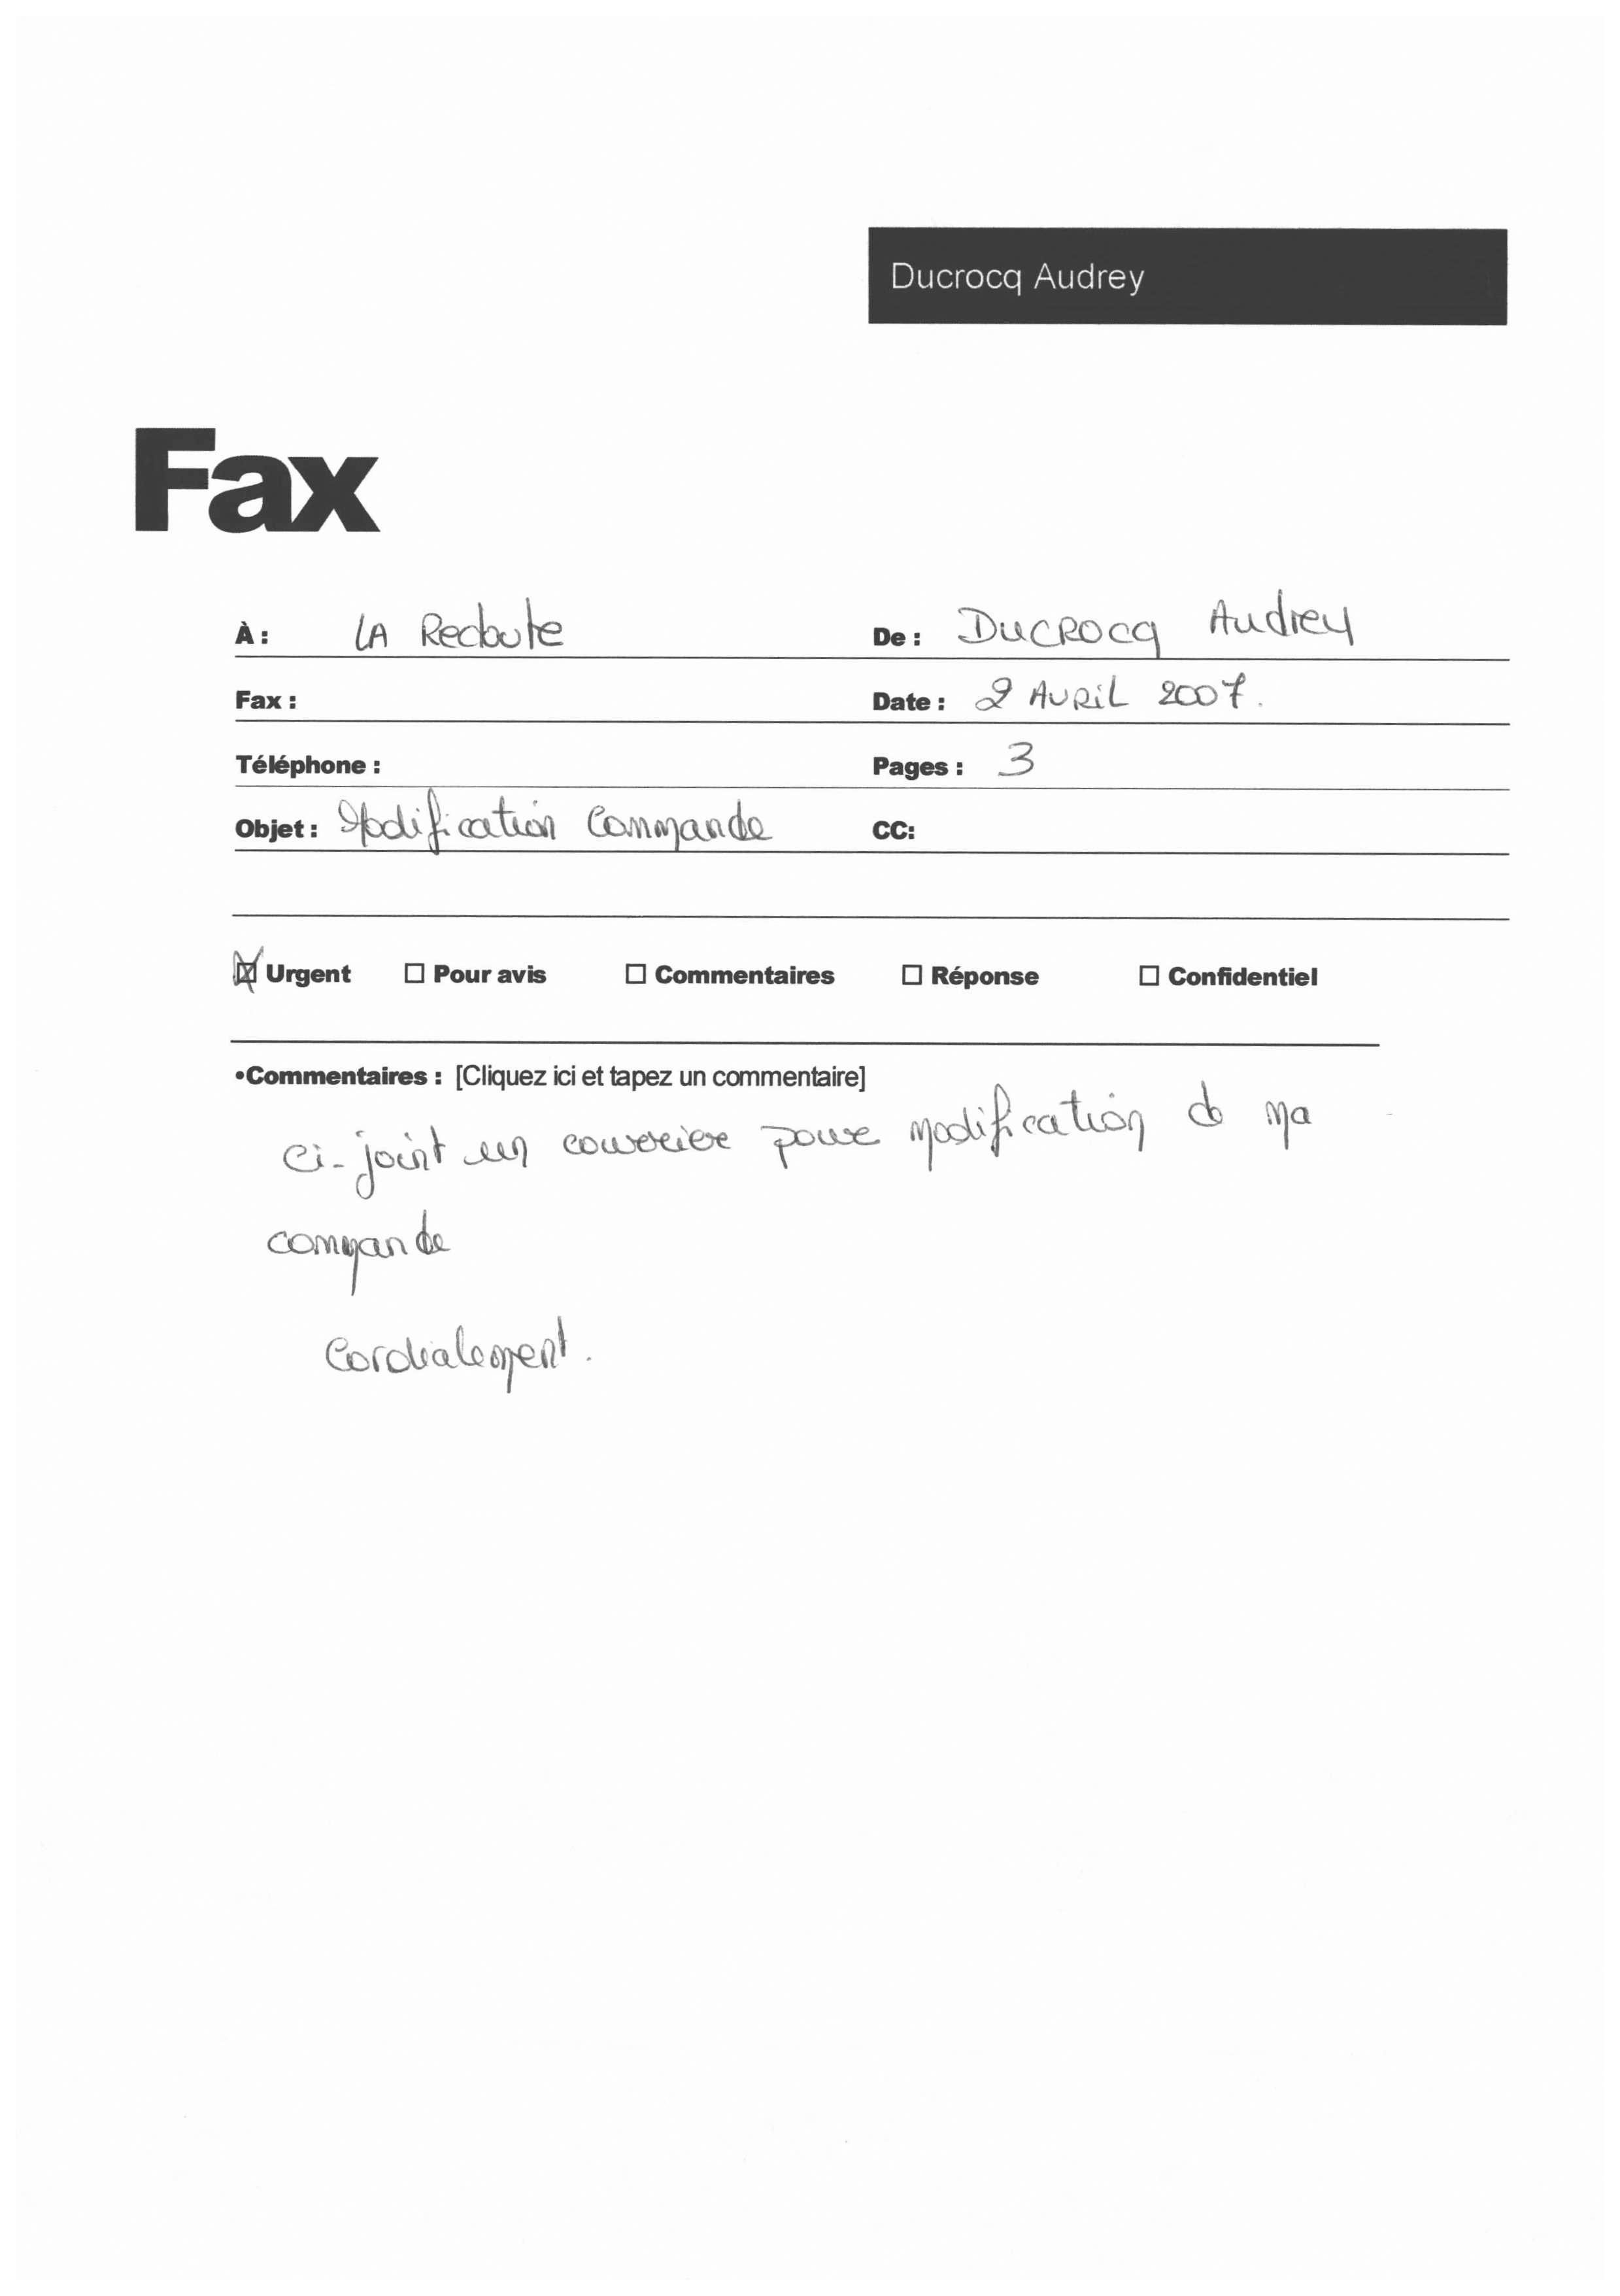 Ducrocq Audrey
Fax
À : LA Redoute De : DUCROCQ Audrey
Fax : Date : 2 AVRiL 2007.
Téléphone : Pages : 3
Objet : Modification Commande CC:
Urgent Pour avis Commentaires Réponse Confidentiel
•Commentaires : [Cliquez ici et tapez un commentaire]
Ci-joint un courrier pour modification de ma
commande
Cordialement.